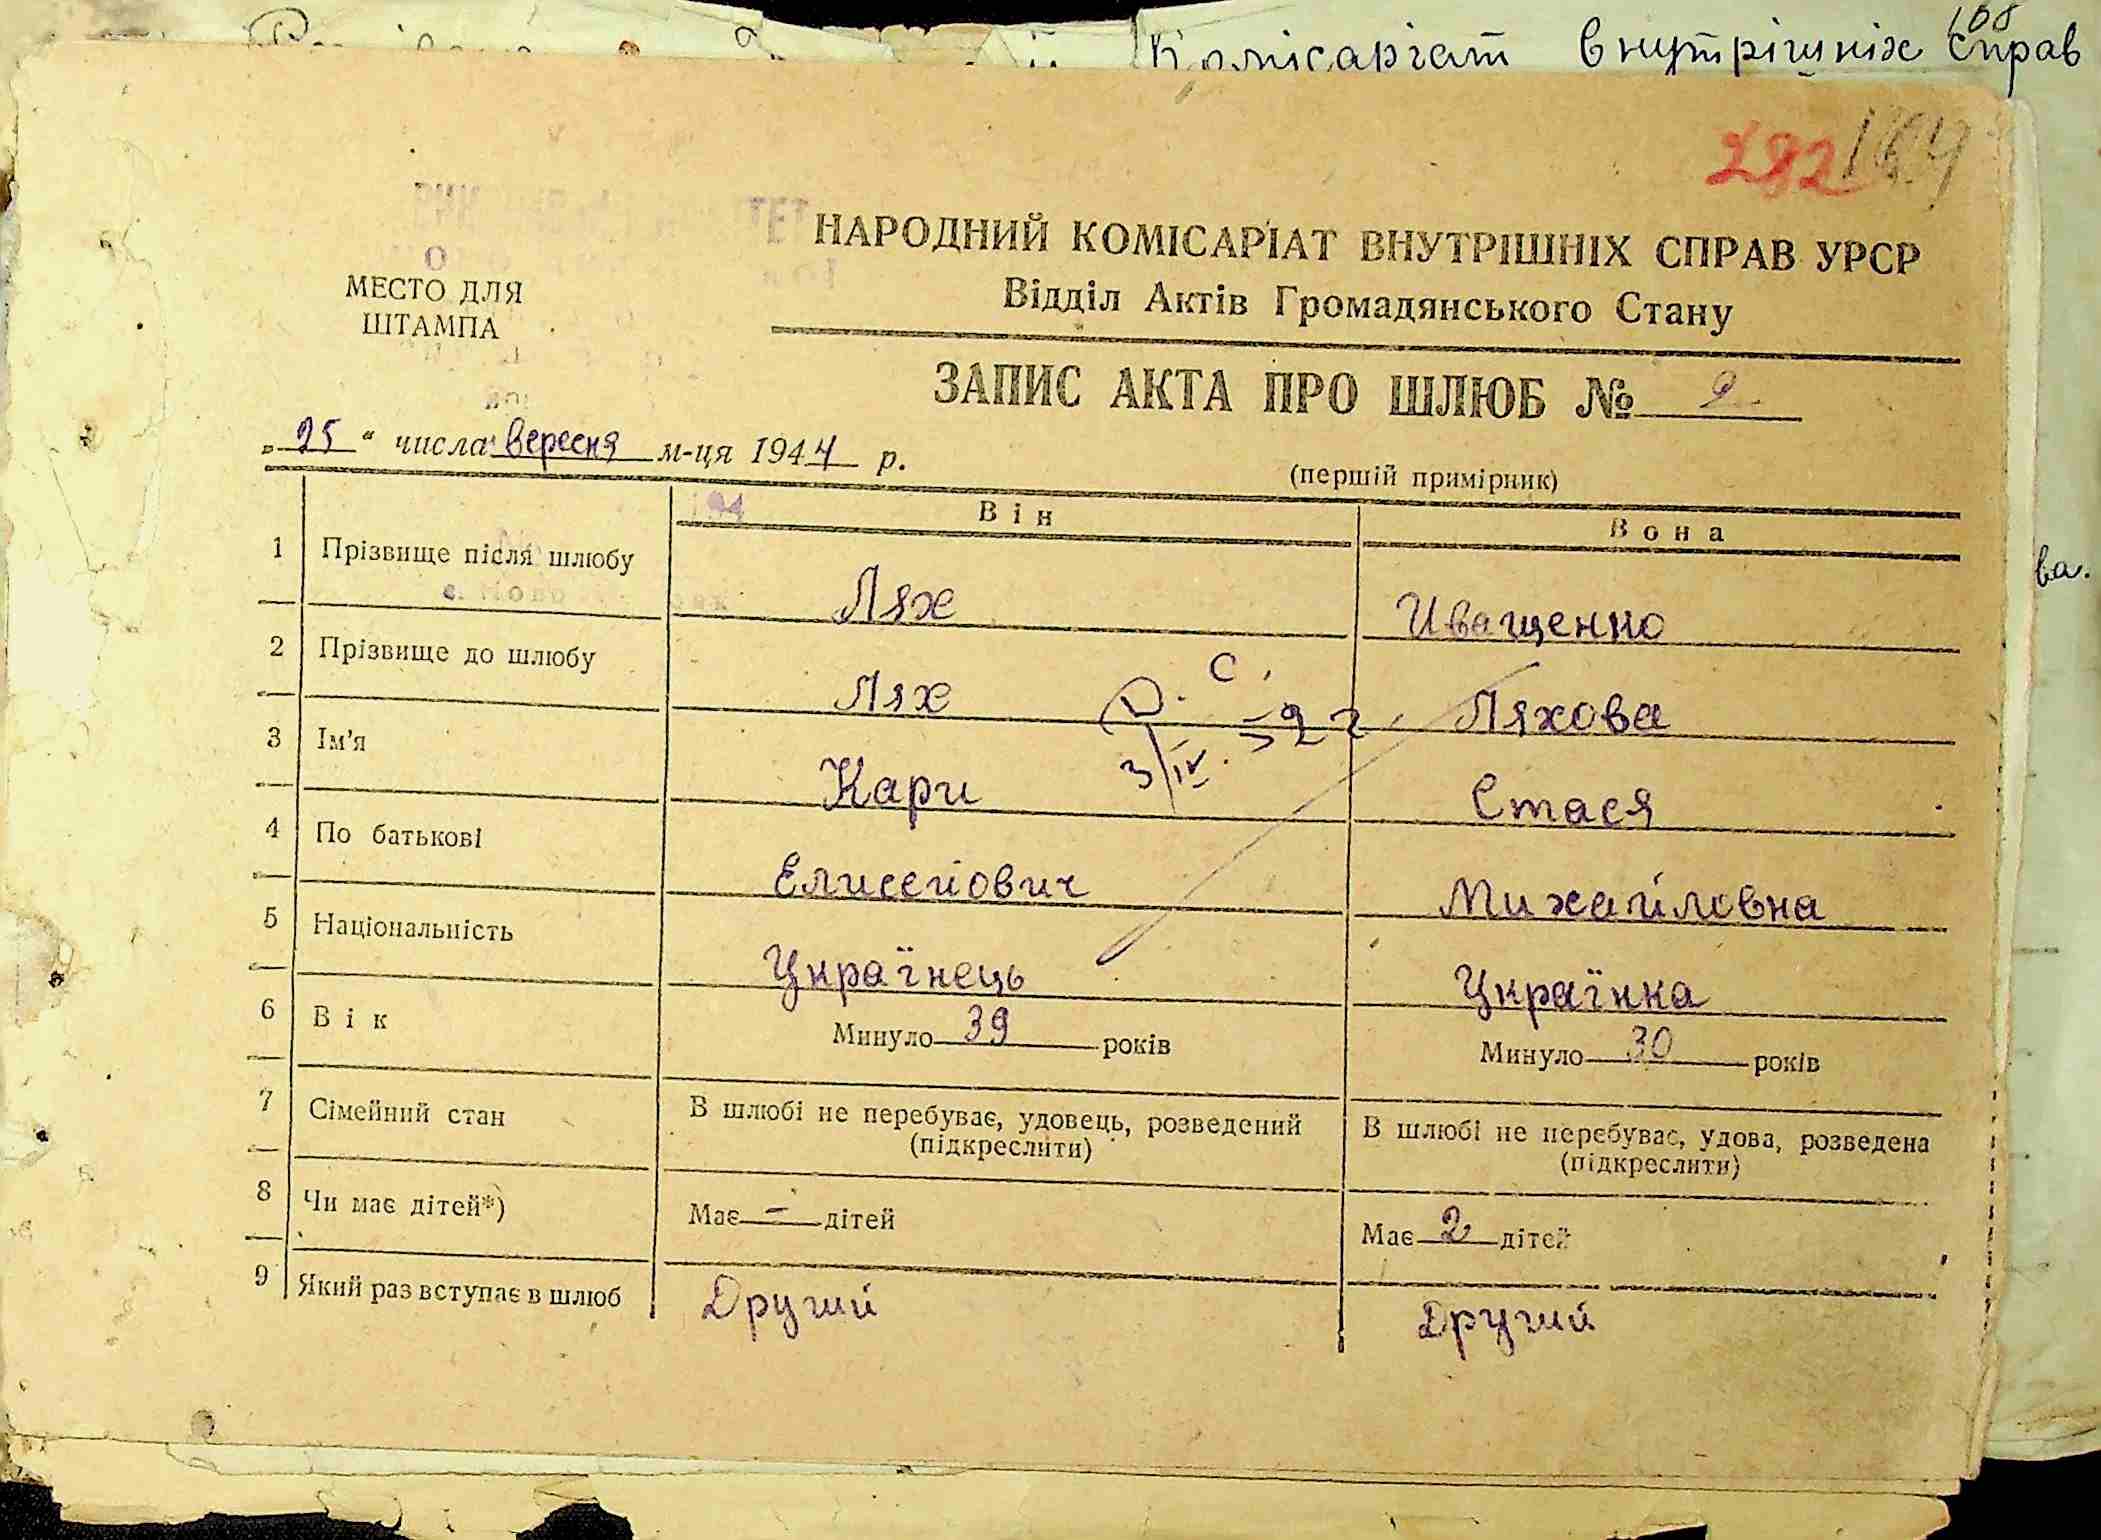 Комісаріат внутрішніх справ
168
282 164
НАРОДНИЙ КОМІСАРІАТ ВНУТРІШНІХ СПРАВ УРСР
Відділ Актів Громадянського Стану
МЕСТО ДЛЯ
ШТАМПА
ЗАПИС АКТА ПРО ШЛЮБ № 9
„25“ числа вересня м-ця 1944 р.
(першій примірник)
Він Вона
1 Прізвище після шлюбу Лях Иващенко
2 Прізвище до шлюбу Лях Ляхова
3 Ім'я Карп Стася
4 По батькові Елисейович Михайловна
5 Національність Українець Українка
6 Вік Минуло 39 років Минуло 30 років
7 Сімейний стан В шлюбі не перебуває, удовець, розведений (підкреслити) В шлюбі не перебуває, удова, розведена (підкреслити)
8 Чи має дітей*) Має - дітей Має 2 дітей
9 Який раз вступає в шлюб Другий Другий
ва.